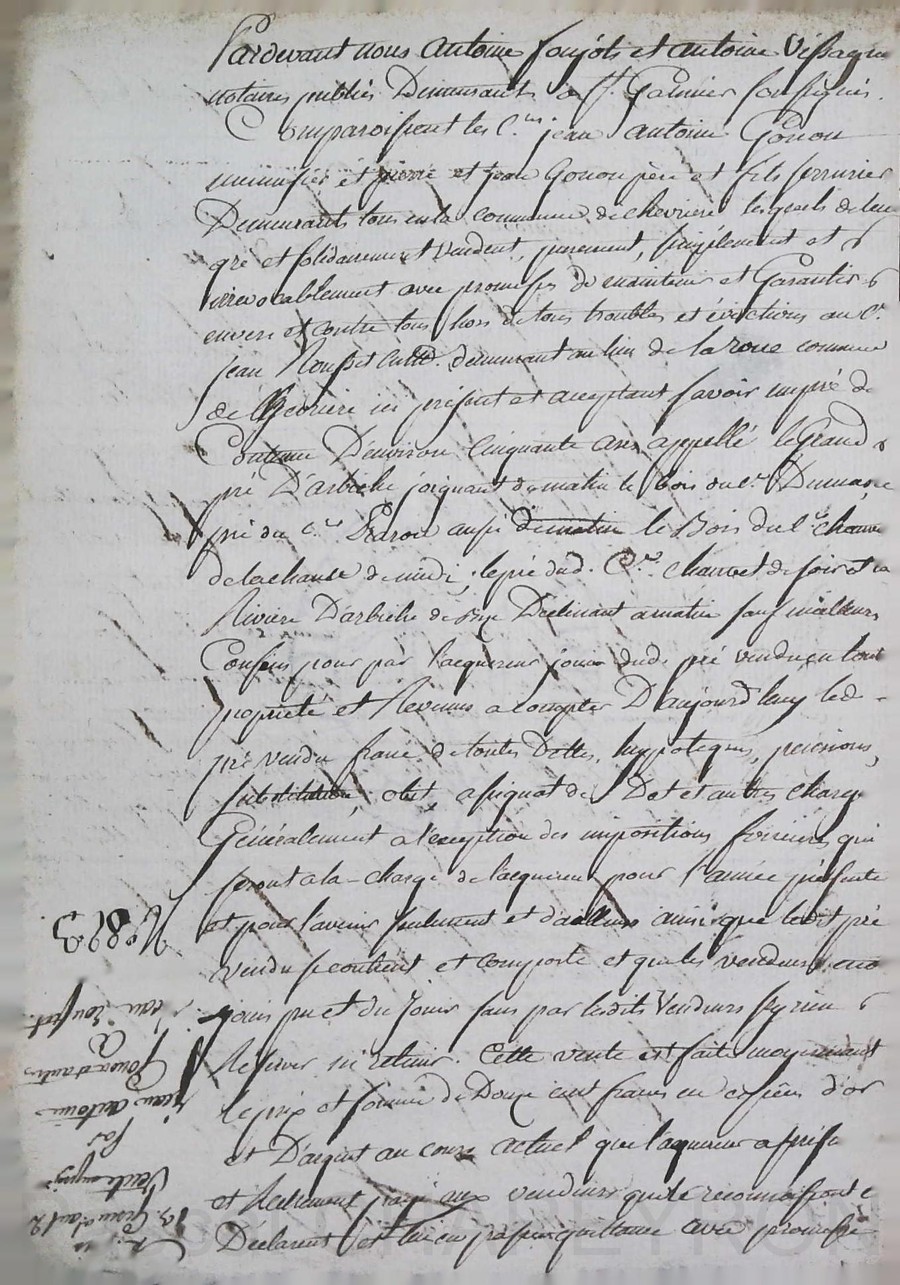 Pardevant nous antoine foujols et antoine Vissagu
notaires publics Demeurants a St. Galmier soussignés.
Comparoissent les C.ens jean antoine Gonon
menuisier et pierre et jean Gonon père et fils serrurier
Demeurant tous en la commune de chevriere lesquels de leur
gré et solidairement vendent, purement, simplement et
irrevocablement avec promesses de maintenir et Garantir
envers et contre tous hors de tous troubles et évictions au C.
jean Rousset cultr. demeurant au lieu de la roue commune
de Chevriere ici présent et acceptant savoir un pré de
Contenue D'environ Cinquante ares appellé le Grand
pré D'arbiche joignant de matin le bois du C.en
pré du C.en aussi de matin le Bois du C.
de la chause de midi, le pré dud. C.en Chauvet de soir et la
Riviere D'arbiche de bize Declinant a matin sauf meilleurs
Confins pour par l'acquereur jouir dud. pré vendu en toute
propriété et Revenus a compter D'aujourd'huy led.
pré vendu franc de toutes Dettes, hyppoteques, pensions,
substitution, obit, assignat de Dot et autres charges
Généralement a l'exception des impositions foncieres qui
seront a la charge de l'acquereur pour l'année présente
et pour l'avenir seulement et d'ailleurs ainsi que ledit pré
vendu se contient et comporte et que les vendeurs en
jouis pu et du jouir sans par lesdits Vendeurs s'y rien
Reserver ni retenir. Cette vente est faite moyennant
le prix et somme de Douze cent francs en espèces d'or
et D'argent au cours actuel que l'acquereur a présen
et Reellement payé aux vendeurs qui le reconnoissent
Déclarent et lui en passent quittance avec promesse
N° 8823
Vente
par
jean antoine
Gonon et autres
a
jean rousset